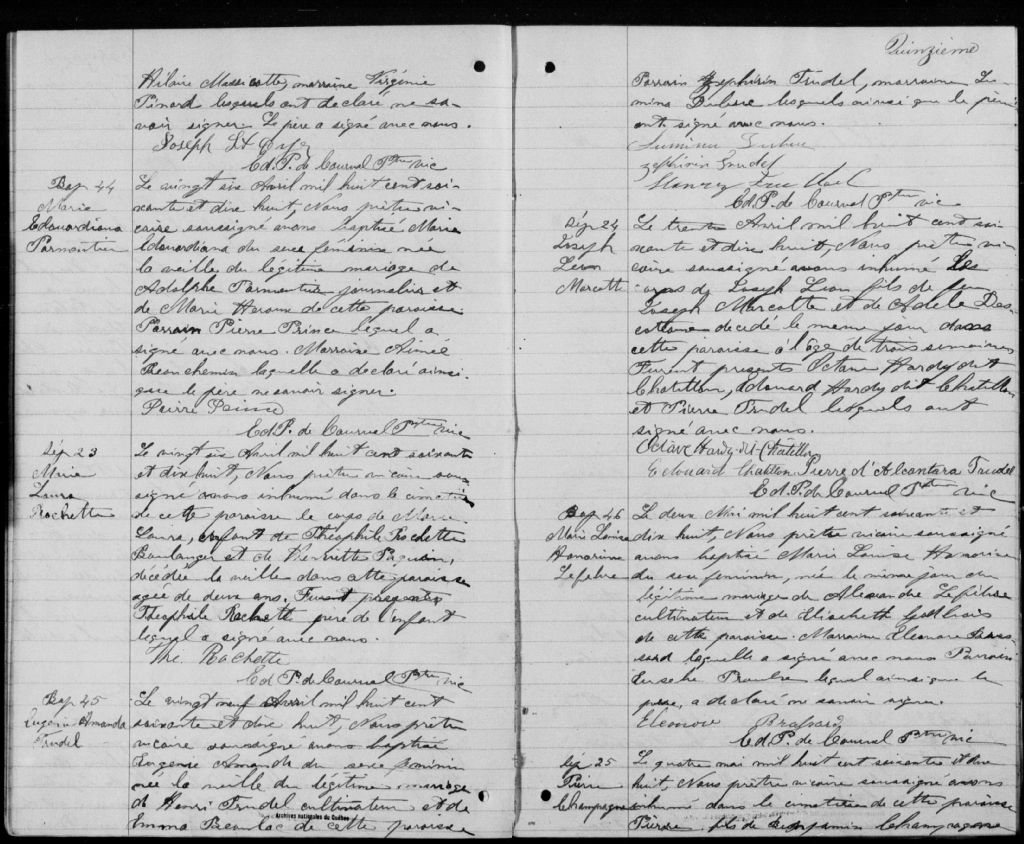 Hilaire Massicotte, marraine Virgénie
Pinard lesquels ont déclaré ne sa-
voir signer. Le père a signé avec nous.
Joseph St
Ed. P. de Courval Ptre vic
Bap 44
Marie
Edouardiana
Parmentier
Le vingt six Avril mil huit cent soi-
xante et dix huit, Nous prêtre vi-
caire soussigné avons baptisé Marie
Edouardiana du sexe féminin née
la veille du légitime mariage de
Adolphe Parmentier journalier et
de Marie de cette paroisse
Parrain Pierre Prince lequel a
signé avec nous. Marraine Aimée
Beauchemin laquelle a déclaré ainsi
que le père ne savoir signer.
Pierre Prince
Ed. P. de Courval Ptre vic
Sép 23
Marie
Laura
Rochette
Le vingt six Avril mil huit cent soixante
et dix huit, Nous prêtre vicaire sous
signé avons inhumé dans le cimetière
de cette paroisse le corps de Marie
Laura, enfant de Théophile Rochette
Boulanger et de Henriette Paquin,
décédée la veille dans cette paroisse
agée de deux ans. Furent presents
Théophile Rochette père de l'enfant
lequel a signé avec nous.
The. Rochette
Ed. P. de Courval Ptre vic
Bap 45
Eugénie Amanda
Trudel
Le vingt neuf Avril mil huit cent
soixante et dix huit, Nous prêtre
vicaire soussigné avons baptisé
Eugenie Amanda du sexe féminin
née la veille du légitime mariage
de Henri Trudel cultivateur et de
Emma Beaulac de cette paroisse
Archives nationales du Québec
Quinzième
Parrain Zephirin Trudel, marraine Lu-
mina lesquels ainsi que le père
ont signé avec nous.
Lumina
Zephirin Trudel
Henry Trudel
Ed. P. de Courval Ptre vic
Sép 24
Joseph
Leon
Marcotte
Le trente Avril mil huit cent soi-
xante et dix huit, Nous prêtre vi-
caire soussigné avons inhumé Les
corps de Joseph Leon fils de feu
Joseph Marcotte et de Adèle Des-
coteaux décédé le même jour dans
cette paroisse à l'âge de trois semaines
Furent presents Octave Hardy dit
Chatillon, Edouard Hardy dit Chatillon
et Pierre Trudel lesquels ont
signé avec nous.
Octave Hardy dit Châtillon
Edouard Chatillon Pierre d'Alcantara Trudel
Ed. P. de Courval Ptre vic
Bap 46
Marie Louise
Honorine
Lefebre
Le deux Mai mil huit cent soixante et
dix huit, Nous prêtre vicaire soussigné
avons baptisé Marie Louise Honorine
du sexe feminin, née le même jour du
légitime mariage de Alexandre Lefebre
cultivateur et de Elisabeth
de cette paroisse. Marraine Eleonore Bras-
sard laquelle a signé avec nous Parrain
Eusebe lequel ainsi que le
père, a déclaré ne savoir signer.
Eleonore Brassard
Ed. P. de Courval Ptre vic
Sép 25
Pierre
Champagne
Le quatre mai mil huit cent soixante et dix
huit, Nous prêtre vicaire soussigné avons
inhumé dans le cimetière de cette paroisse
Pierre fils de Benjamin Champagne